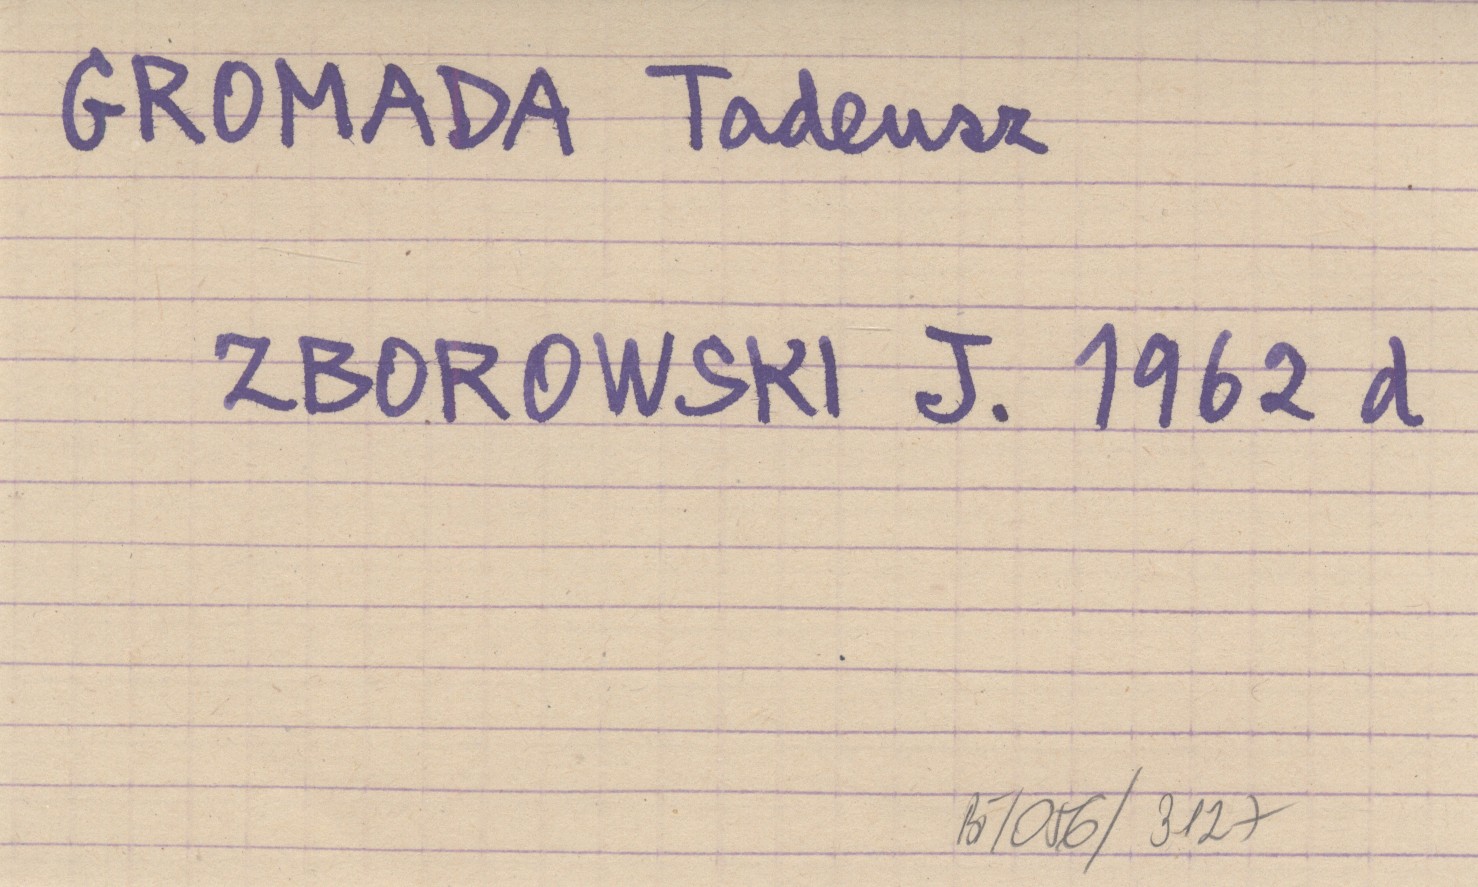 GROMADA Tadeusz
ZBOROWSKI J. 1962 d
3127